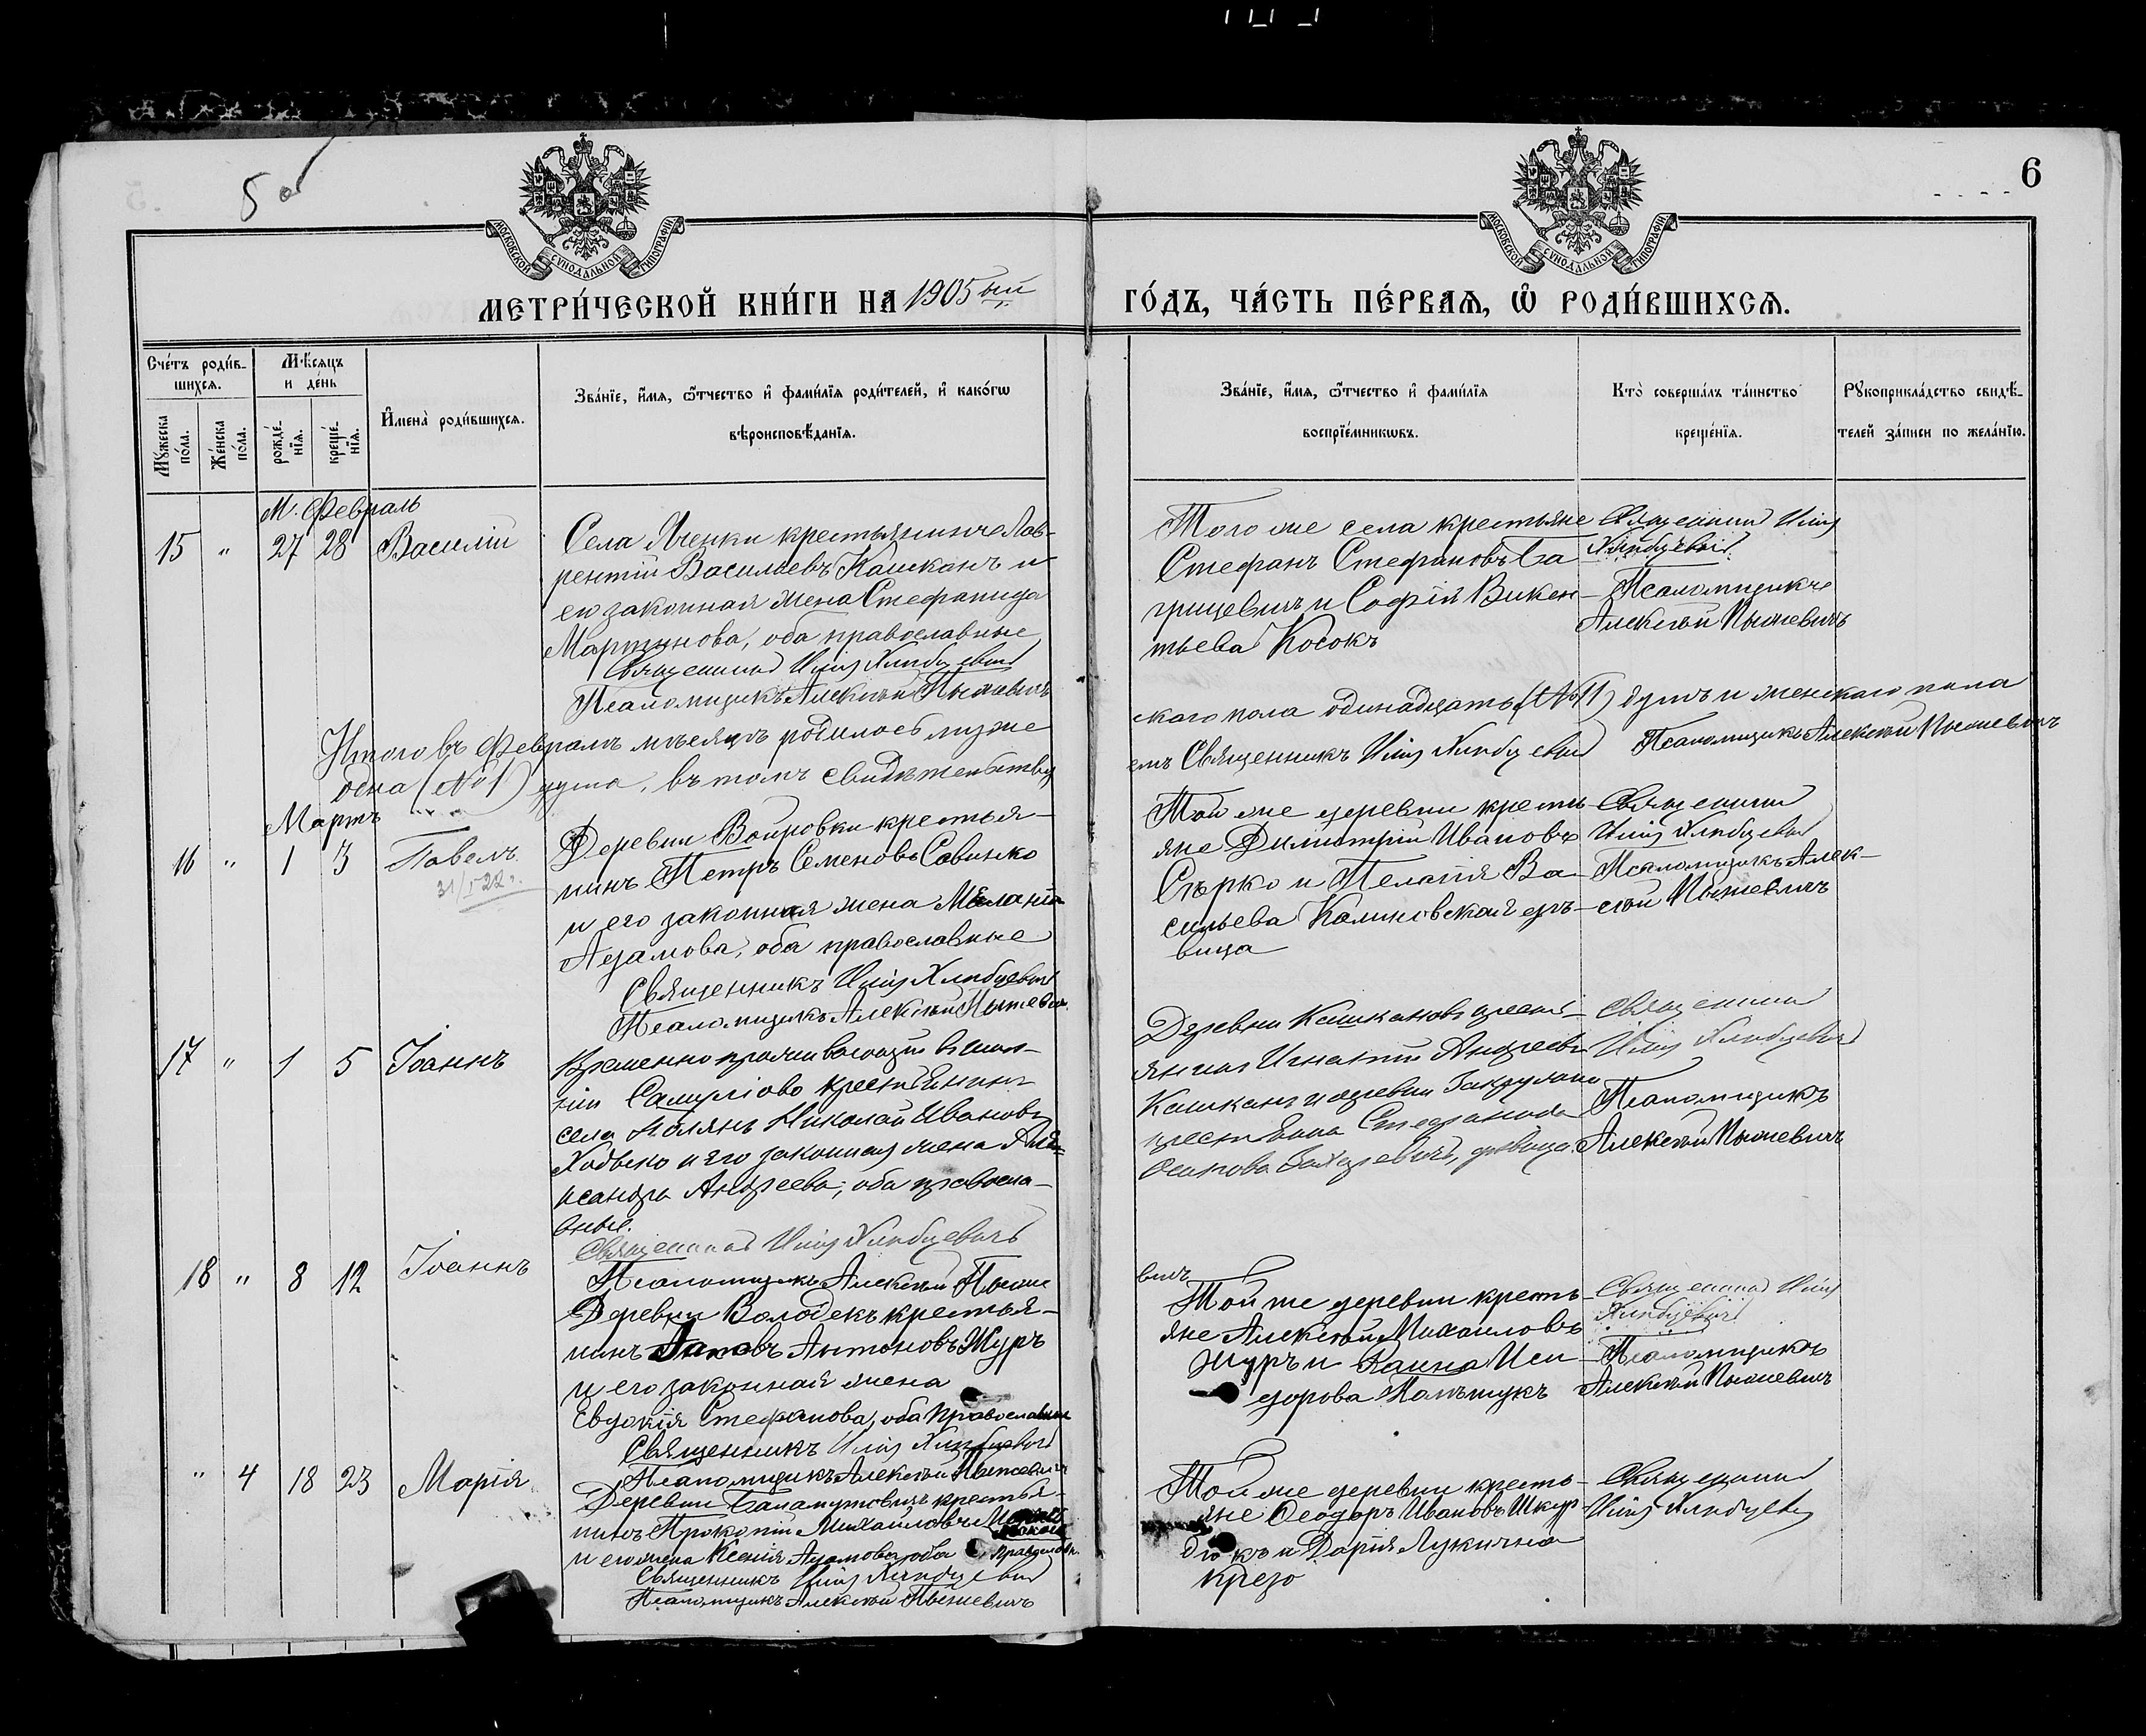 5 об
6
МОСКОВСКОЙ СѴНОДАЛЬНОЙ ТИПОГРАФІИ
МОСКОВСКОЙ СѴНОДАЛЬНОЙ ТИПОГРАФІИ
МЕТРИ́ЧЕСКОЙ КНИ́ГИ НА 1905 ый ГО́ДЪ, ЧА́СТЬ ПЕ́РВАѦ, Ѽ РОДИ́ВШИХСѦ.
Сче́тъ роди́в-
шихсѧ.
Мѣ́сѧцъ
и де́нь
Мꙋ́жеска
по́ла.
Же́нска
по́ла.
рожде́-
нїѧ.
креще́-
нїѧ.
И҆мена̀ роди́вшихсѧ.
Зва́нїе, и҆́мѧ, ѻ҆́тчество и҆ фами́лїѧ роди́телей, и҆ како́гѡ
вѣроисповѣ́данїѧ.
Зва́нїе, и҆́мѧ, ѻ҆́тчество и҆ фами́лїѧ
воспрїе́мникѡвъ.
Кто̀ соверша́лъ та́инство
креще́нїѧ.
Рꙋкоприкла́дство свидѣ́-
телей за́писи по жела́нїю.
М. Февраль
15 " 27 28 Василій
Села Яченки крестьянинъ Лав-
рентій Васильевъ Кашканъ и
его законная жена Стефанида
Мартинова, оба православные
Священникъ Илія Хлѣбцевичъ
Псаломщикъ Алексѣй Пыжевичъ
Того же села крестьяне
Стефанъ Стефановъ Ба
грицевичъ и Софія Викен-
тьева Косокъ
Священникъ Илія
Хлѣбцевичъ
Псаломщикъ
Алексѣй Пыжевичъ
Итого въ Февралѣ мѣсяцѣ родилось мужескаго пола одинадцать (№ 11) душъ и женскаго пола
одна (№ 1) душа, въ томъ свидѣтельствуемъ Священникъ Илія Хлѣбцевичъ Псаломщикъ Алексѣй Пыжевичъ
Мартъ
16 " 1 3 Павелъ
31/I 22 г.
Деревни Войровки крестья-
нинъ Петръ Семеновъ Савинко
и его законная жена Меланія
Адамова, оба православные
Священникъ Илія Хлѣбцевичъ
Псаломщикъ Алексѣй Пыжевичъ
Той же деревни кресть-
яне Димитрій Ивановъ
Сѣрко и Пелагія Ва-
сильева Калиновская дѣ-
вица
Священникъ
Илія Хлѣбцевичъ
Псаломщикъ Алек-
сѣй Пыжевичъ
17 " 1 5 Іоаннъ
Временно проживающій въ имѣ-
ніи крестьянинъ
села Николай Ивановъ
Ходько и его законная жена Алек-
сандра Андреева, оба правосла-
вные.
Священникъ Илія Хлѣбцевичъ
Псаломщикъ Алексѣй Пыже
вичъ
Деревни Кашкановъ кресть-
янинъ Игнатій Андреевъ
Кашканъ и деревни
крестьянка Стефанида
Осипова дѣвица.
Священникъ
Илія Хлѣбцевичъ
Псаломщикъ
Алексѣй Пыжевичъ
18 " 8 12 Іоаннъ
Деревни Володекъ крестья-
нинъ Іаковъ Антоновъ Журъ
и его законная жена
Евдокія Стефанова, оба православные
Священникъ Илія Хлѣбцевичъ
Псаломщикъ Алексѣй Пыжевичъ
Той же деревни кресть-
яне Алексѣй Михаиловъ
Журъ и Иси-
дорова
Священникъ Илія
Хлѣбцевичъ
Псаломщикъ
Алексѣй Пыжевичъ
" 4 18 23 Марія
Деревни Баламутовичъ крестья-
нинъ Прокопій Михайловъ
и его жена Ксенія Адамова, оба православн.
Священникъ Илія Хлѣбцевичъ
Псаломщикъ Алексѣй Пыжевичъ
Той же деревни кресть-
яне Ѳеодоръ Ивановъ Шкур-
и Дарія Лукична
Крезо
Священникъ
Илія Хлѣбцевичъ